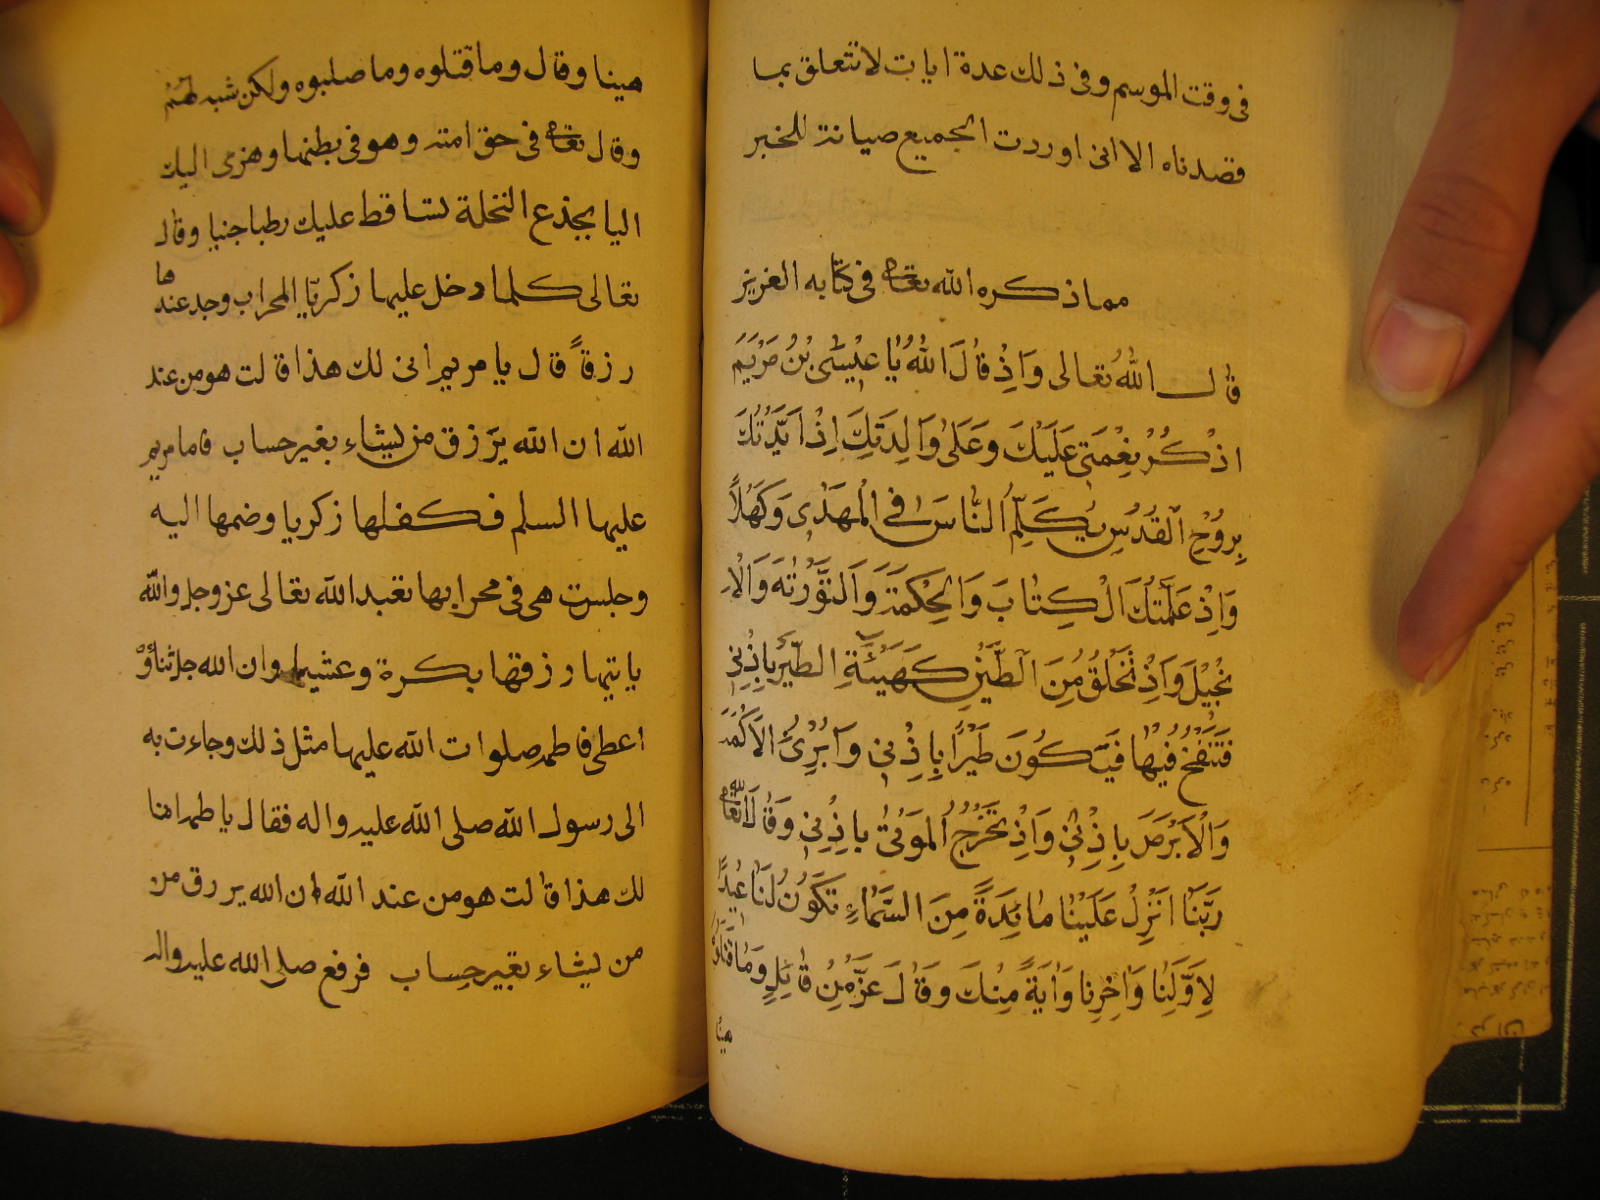 فى وقت الموسم وفى ذلك عدة ايات لا تتعلق بما
قصدناه الا انى اوردت الجميع صيانة للخبر
مما ذكره الله تعا فى كتابه العزيز
قال الله تعالى وَاِذْ قالَ اللهُ يا عيْسَى بْنُ مَرْيَمَ
اذْكُرْ نِعْمَتى عَلَيْكَ وَعَلى وَالِدَتِكَ اِذْ اَيَّدْتُكَ
بِروُحِ القُدُسِ تُكَلِّمُ النّاسَ فِى الْمَهْدِ وَكَهْلاً
وَاِذْ عَلَّمْتُكَ الْكِتابَ وَالْحِكْمَةَ وَالتَّوْرٰيةَ وَالْاِ
نْجيْلَ وَاِذْ تَخْلُقُ مِنَ الطّيْنِ كَهَيْئَةِ الطَّيْرِ بِاِذْنى
فَتَنْفُخُ فيْها فَتَكُونَ طَيْرًا بِاِذْنى وَتُبْرِئُ الاَكْمَهَ
وَالْاَبْرَصَ بِاِذْنى وَاِذْ تُخْرِجُ الْمَوْتى بِاِذْنى وَقالَ اللّه تعا
رَبَّنا اَنْزِلْ عَلَيْنا مائِدَةً مِنَ السَّماءِ تَكُونُ لَنا عيْدًا
لِاَوَّلِنا وَاٰخِرِنا وَاٰيَةً مِنْكَ وَقالَ عَزَّ مِنْ قائِلٍ وَما قَتَلُوْهُ
هينا وقال وما قتلوه وما صلبوه ولكن شبه لهم
وقال تعا فى حق امته وهو فى بطنها وهزى اليك
اليا بجذع النخلة تساقط عليك رطبا جنيا وقال
تعالى كلما دخل عليها زكريّا المحراب وجد عندها
رزقاً قال يا مريم انى لك هذا قالت هو من عند
الله ان الله يرزق من يشاء بغير حساب فاما مريم
عليها السلم فكفلها زكريا وضمها اليه
وجلست هى فى محرابها تعبد الله تعالى عزوجل والله
ياتيها رزقها بكرة وعشيا وان الله جل ثناؤه
اعطى فاطمه صلوات الله عليها مثل ذلك وجاءت به
الى رسول الله صلى الله عليه واله فقال يا طمه انا
لك هذا قالت هو من عند الله ان الله يررق من
من يشاء بغير حساب فرفع صلى الله عليه واله